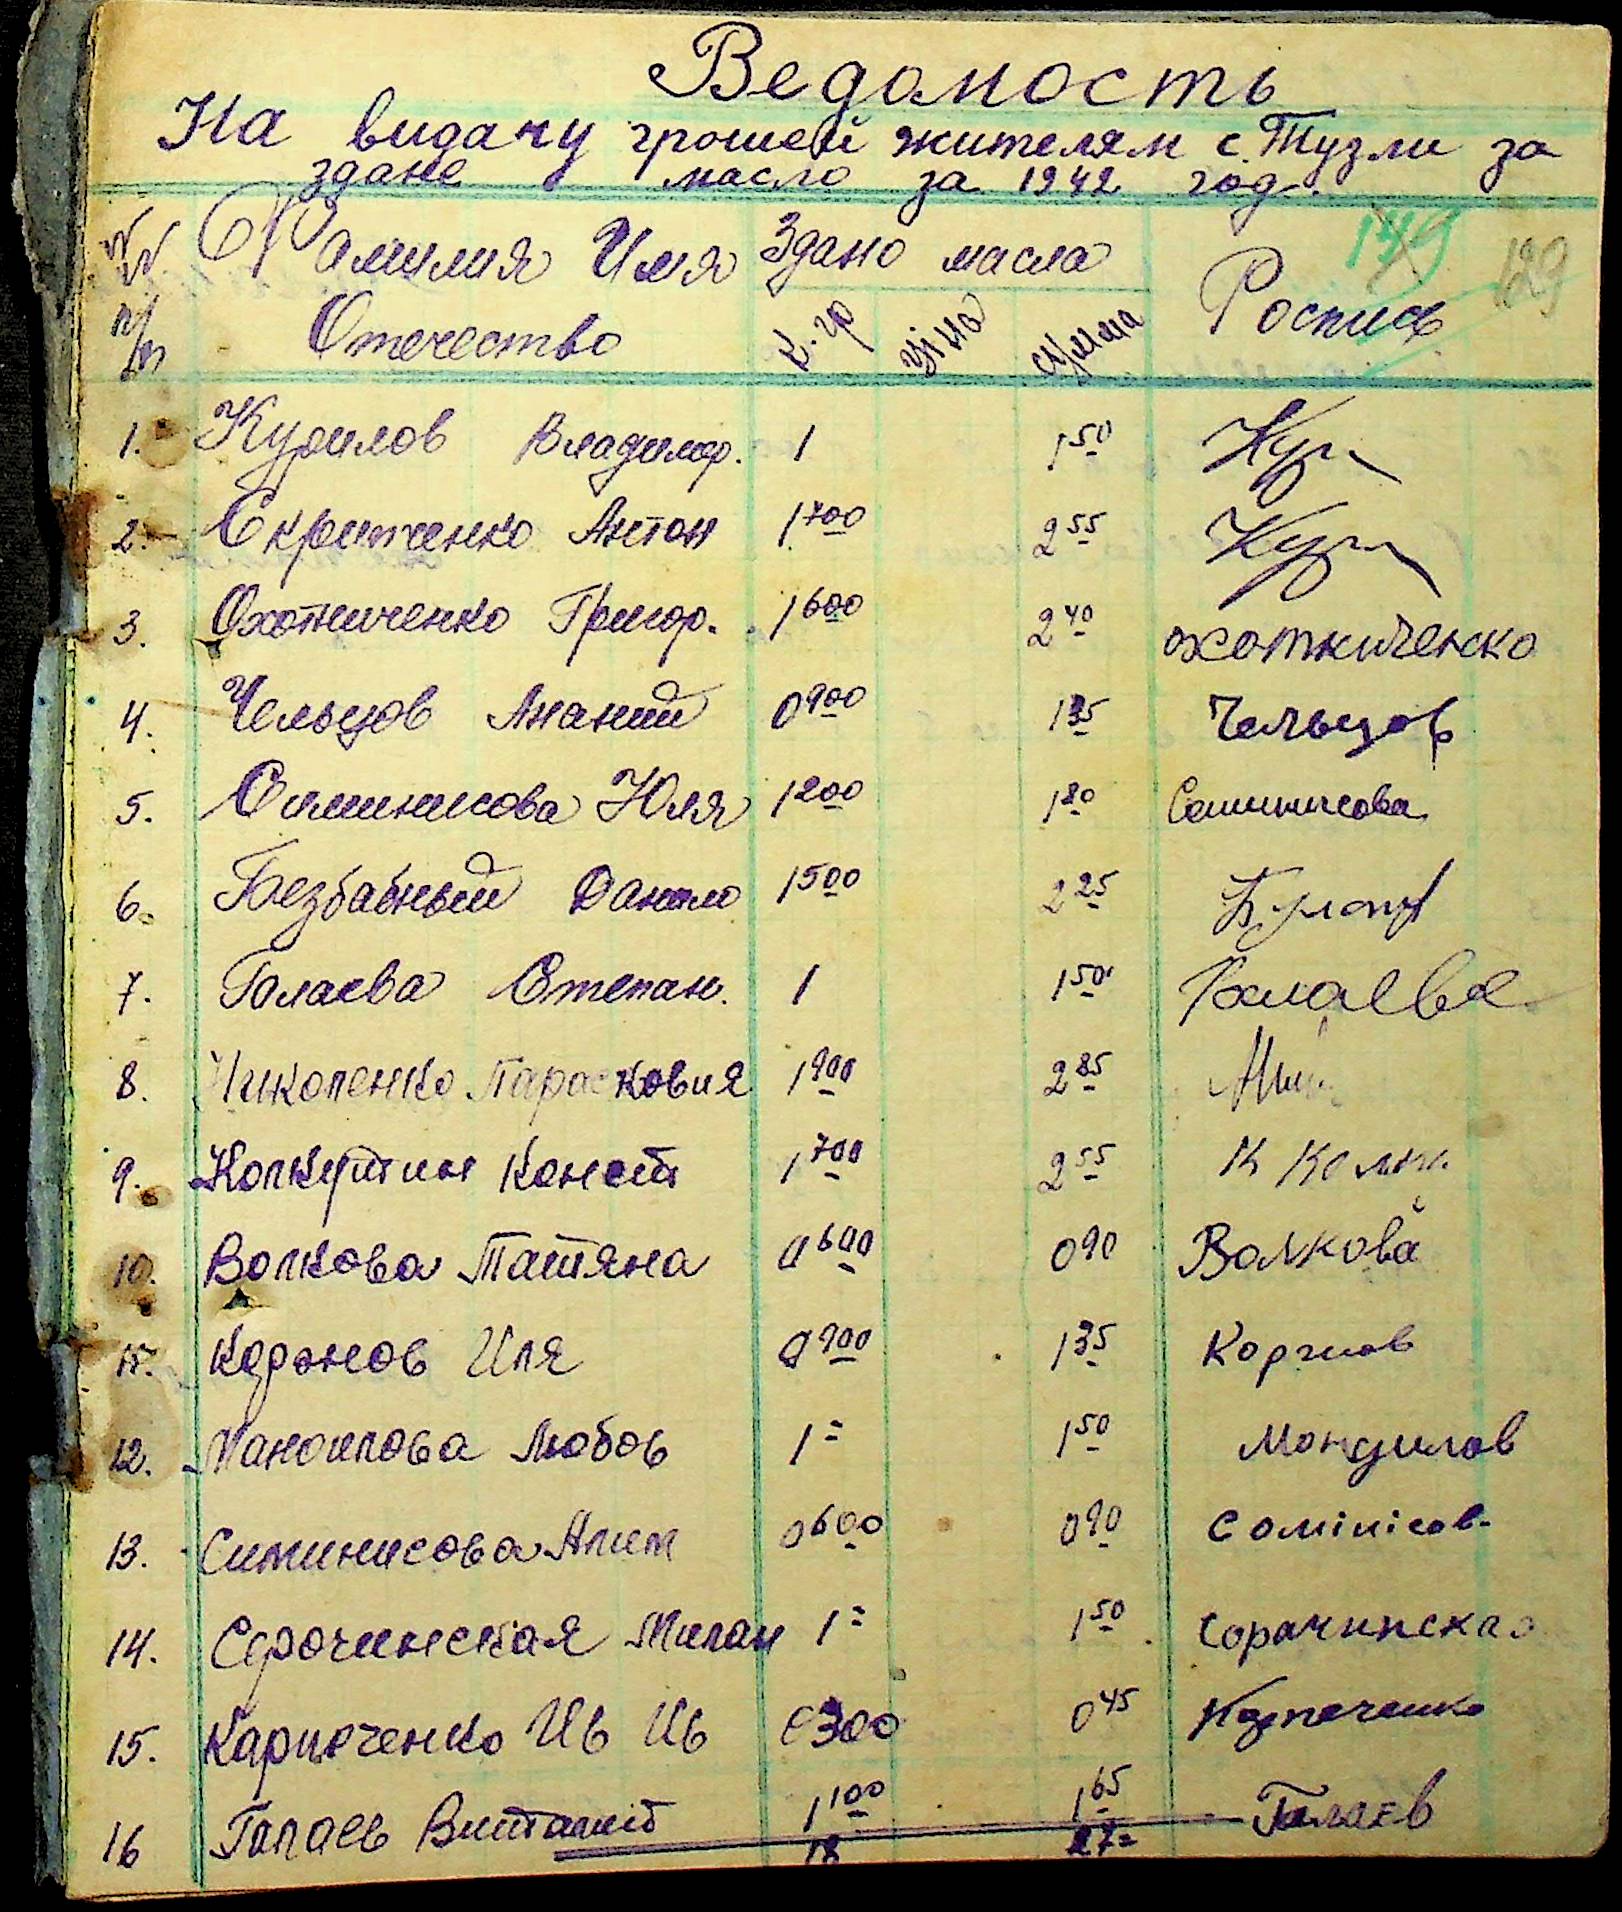 Ведомость
На видачу грошей жителям с. Тузли за
здане масло за 1942 год.
№№ Фамилия Имя Здано масла 149 129
п/п Отечество к. гр ціна сумма Роспись
1. Курилов Владимір. 1 1 50 Кур
2. Скрипченко Антон 1 700 2 55 Кур
3. Охотниченко Григор. 1 600 2 40 охотниченко
4. Чельцов Ананий 0 900 1 35 Чельцов
5. Симинисова Юля 1 200 1 80 Симинисова
6. Безбабный Данило 1 500 2 25
7. Галаева Степан. 1 1 50 Галаева
8. Чикопенко Парасковия 1 900 2 85
9. Колкутин Конст 1 700 2 55 К
10. Волкова Татяна 0 600 0 90 Волкова
11. Коржов Иля 0 900 1 35 Коржов
12. Маноилова Любов 1 = 1 50
13. Симинисова Алит 0 600 0 90 Сомінісов.
14. Сорочинская Милан 1 = 1 50 Сорочинская
15. Карпеченко Ив Ив 0 300 0 45 Карпеченко
16 Галаев Виталий 1 100 1 65 Галаев
18 27=